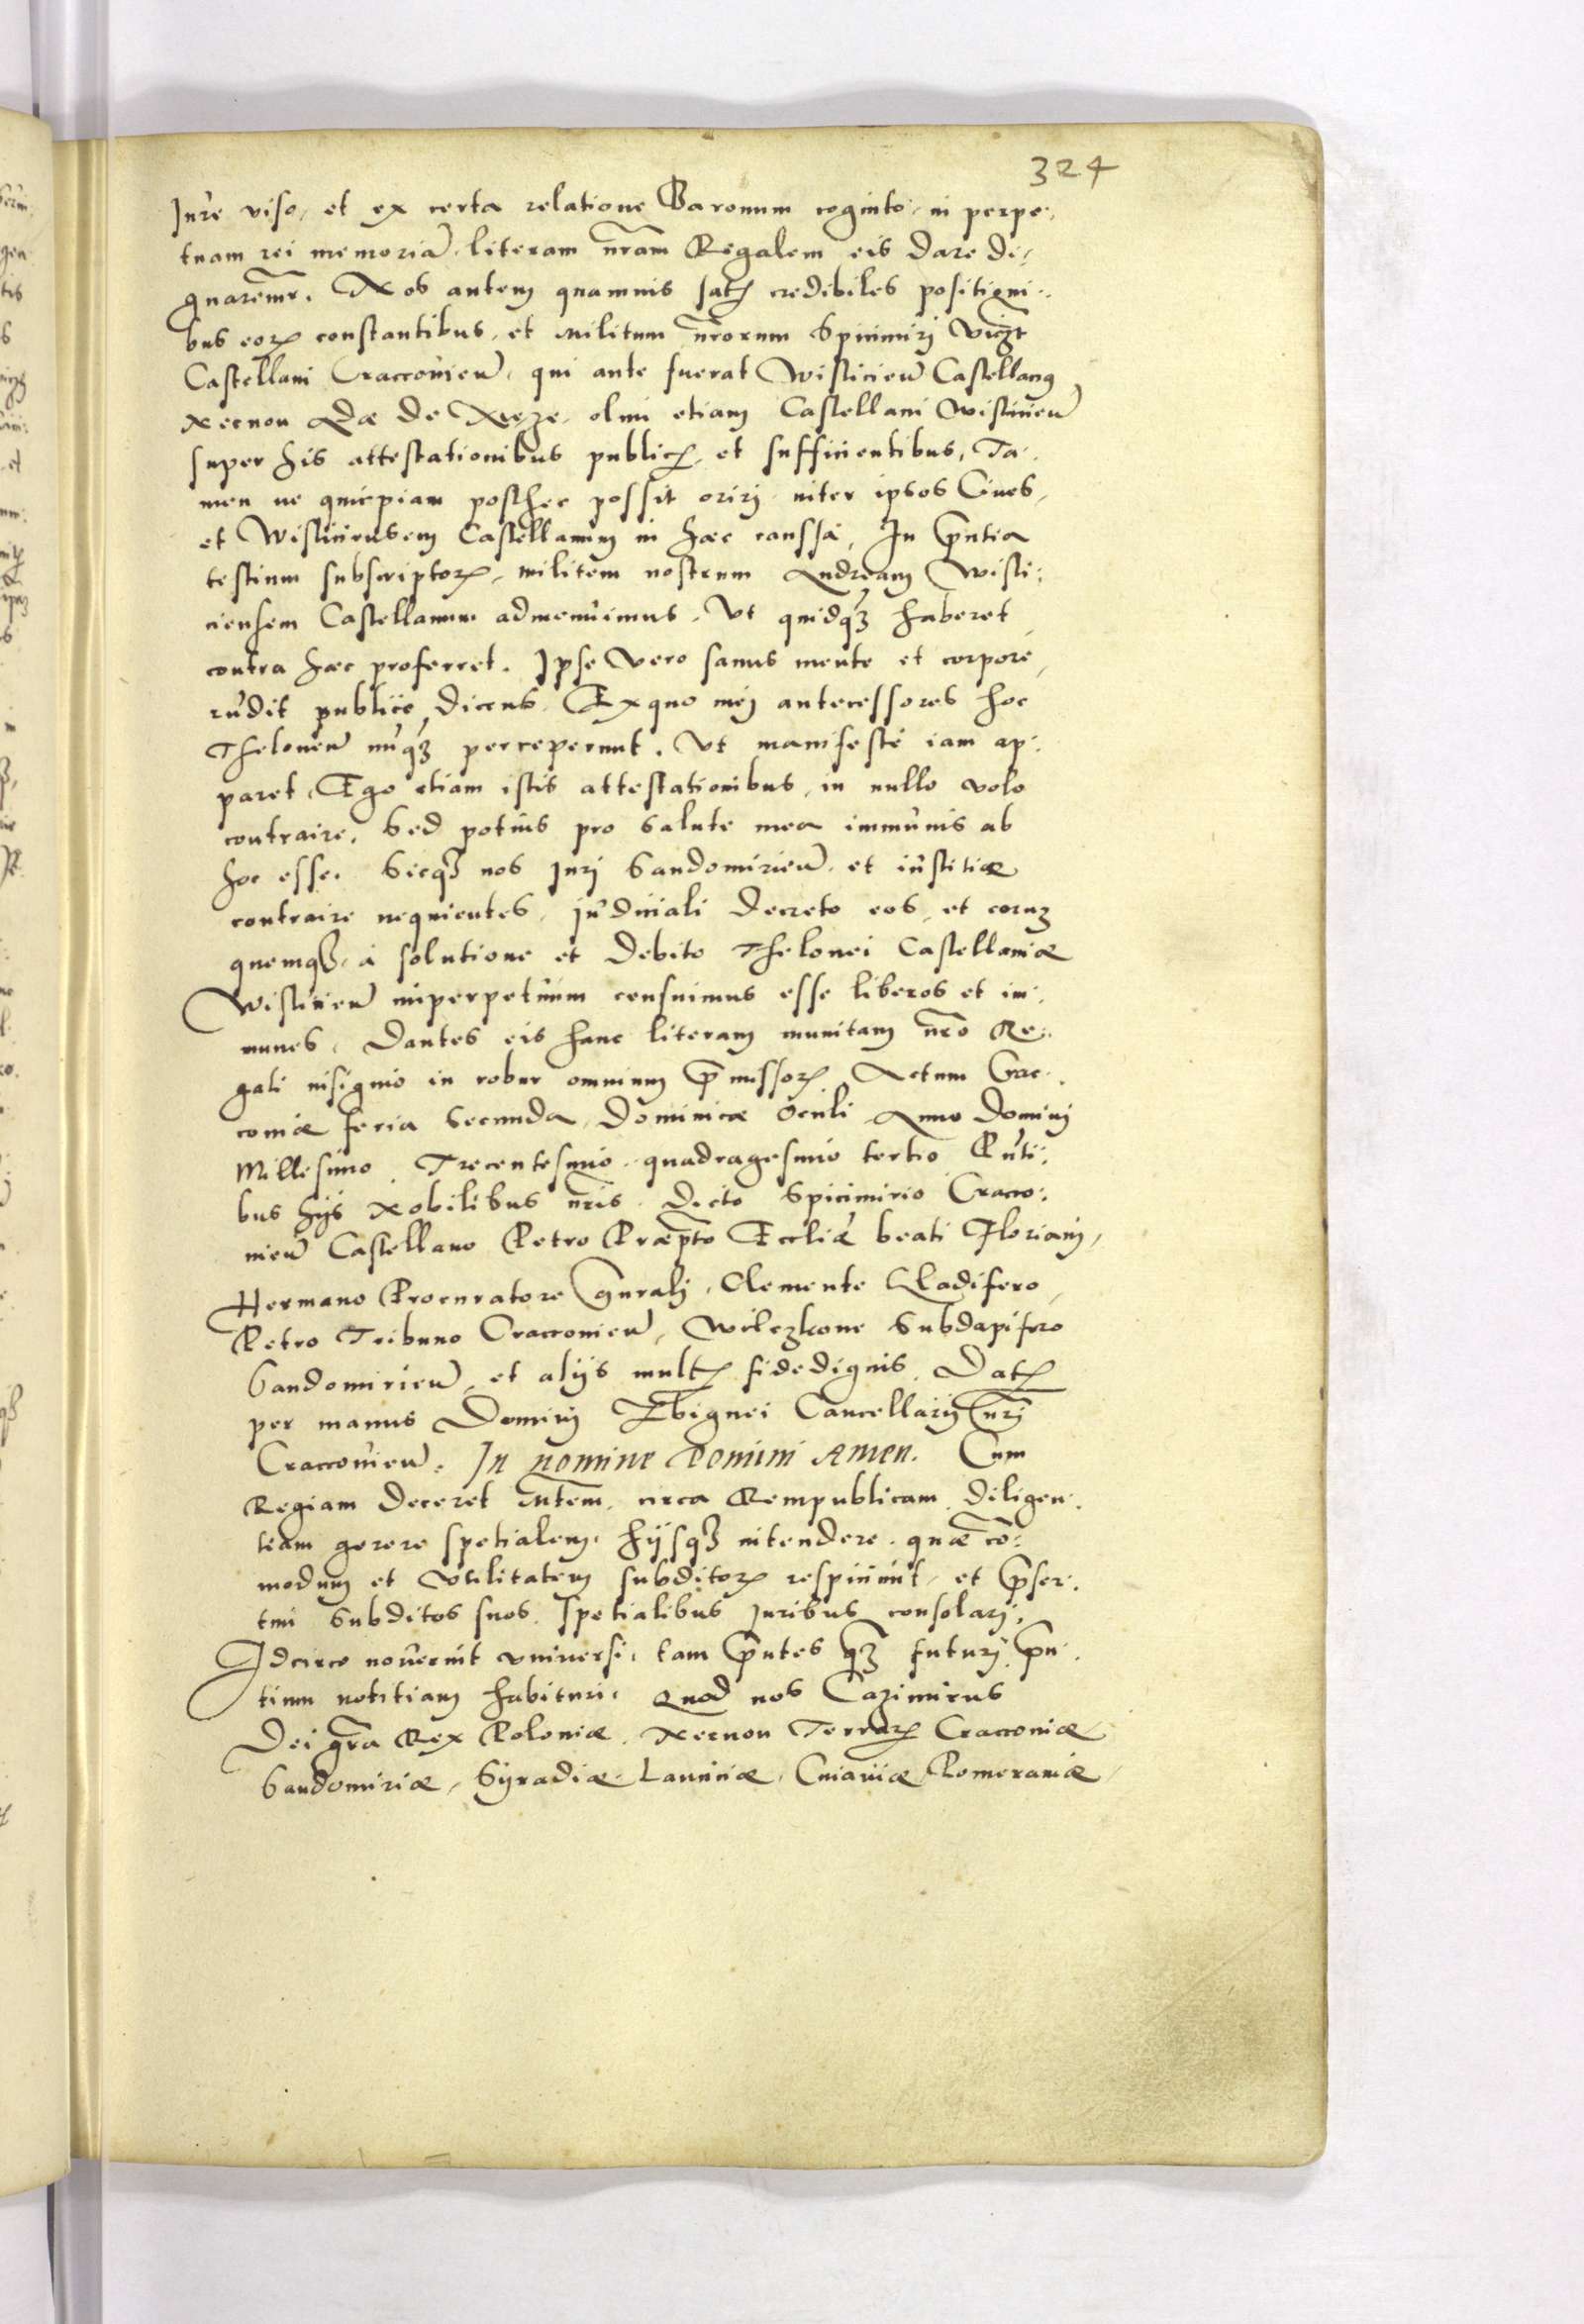 324
Jure viso, et ex certa relatione Baronum cognito, in perpe,
tuam rei memoriā, literam nr̄am Regalem eis dare di,
gnaremur. Nos autem quamuis satis credibiles position̄i,
bus eor̄ constantibus, et Militum nr̄orum Spicimirj
Castellani Cracouień, qui ante fuerat Wislicień Castellanus
Necnon de olim etiam Castellani Wislicień
super his attestationibus publicis, et sufficientibus, Ta,
men ne quicpiam posthec possit orirj inter ipsos Ciues,
et Wisliciensem Castellanum in hac caussa, In p̄ntia
testium subscriptor̄, militem nostrum Andream Wisli,
ciensem Castellanum admonuimus, Vt quidq̄ haberet
contra hæc proferret. Ipse vero sanus mente et corpore,
publice dicens, Ex quo mej antecessores hoc
Theloneū nūq̄ perceperunt, Vt manifeste iam ap,
paret, Ego etiam istis attestationibus, in nullo volo
contraire, Sed potius pro salute mea immunis ab
hoc esse. Sicq̄ nos Jurj Sandomirień, et iustitiæ
contraire nequientes, judiciali decreto eos, et eorum
quemq̄, à solutione et debito Thelonei Castellaniæ
Wislicień inperpetuum censuimus esse liberos et im,
munes, Dantes eis hanc literam munitam nr̄o Re,
gali insignio in robur omnium p̄missor̄, Actum Crac,
couiæ feria Secunda, Dominicæ Oculi Anno Dominj
Millesimo, Trecentesimo, quadragesimo tertio P̄nti,
bus hijs Nobilibus nr̄is, dicto Spicimirio Craco,
uień Castellano Petro Præp̄to Eccliæ beati Florianj,
Hermano Procuratore gn̄ralj, Clemente Gladifero,
Petro Tribuno Cracouień, Wilczkone Subdapifero
Sandomirień, et alijs multis fidedignis, Datis
per manus Dominj Zbignei Cancellarij nr̄j
Cracouień. In nomine Domini Amen. Cum
Regiam deceret Mtem̄, circa Rempublicam diligen,
tiam gerere spetialem, hijsq̄ intendere, quæ cō,
modum et Vtilitatem subditor̄ respiciunt, et p̄ser,
tim Subditos suos, spetialibus Juribus consolarj,
Idcirco nouerint vniuersi, tam p̄ntes q̄ futurj, p̄n,
tium notitiam habituri, Quod nos Cazimirus
Dei gr̄a Rex Poloniæ, Necnon Terrar̄ Cracouiæ
Sandomiriæ, Syradiæ, Lanciciæ, Cuiauiæ, Pomeraniæ